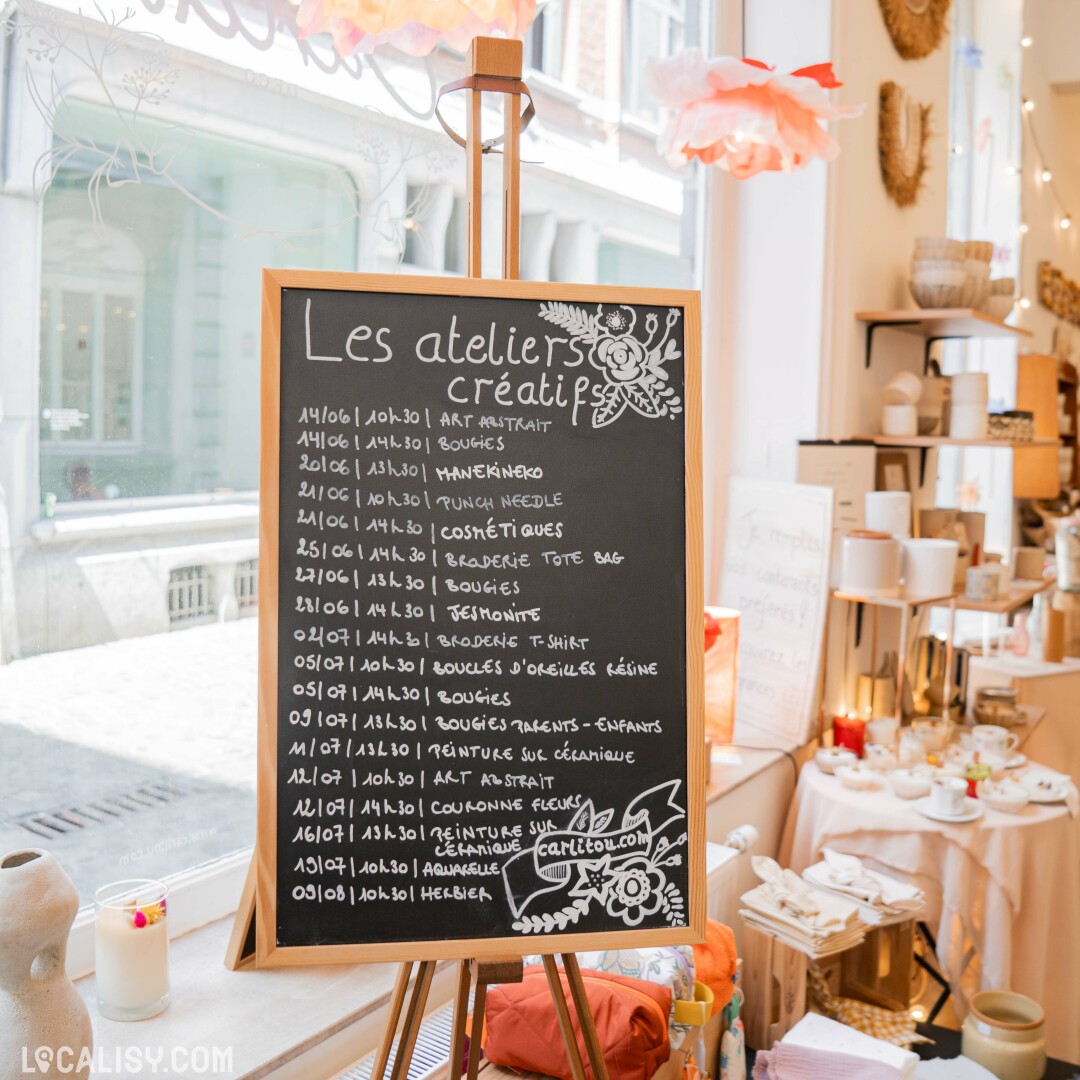 Les ateliers
créatifs
14/06 | 10h30 | ART ABSTRAIT
14/06 | 14h30 | BOUGIES
20/06 | 13h30 | MANEKINEKO
21/06 | 10h30 | PUNCH NEEDLE
21/06 | 14h30 | COSMÉTIQUES
25/06 | 14h30 | BRODERIE TOTE BAG
27/06 | 13h30 | BOUGIES
28/06 | 14h30 | JESMONITE
02/07 | 14h30 | BRODERIE T-SHIRT
05/07 | 10h30 | BOUCLES D'OREILLES RÉSINE
05/07 | 14h30 | BOUGIES
09/07 | 13h30 | BOUGIES PARENTS-ENFANTS
11/07 | 13h30 | PEINTURE SUR CÉRAMIQUE
12/07 | 10h30 | ART ABSTRAIT
12/07 | 14h30 | COURONNE FLEURS
16/07 | 13h30 | PEINTURE SUR
CÉRAMIQUE
carlitou.com
19/07 | 10h30 | AQUARELLE
09/08 | 10h30 | HERBIER
Je remplis
vos contenants
préférés !
LOCALISY.COM